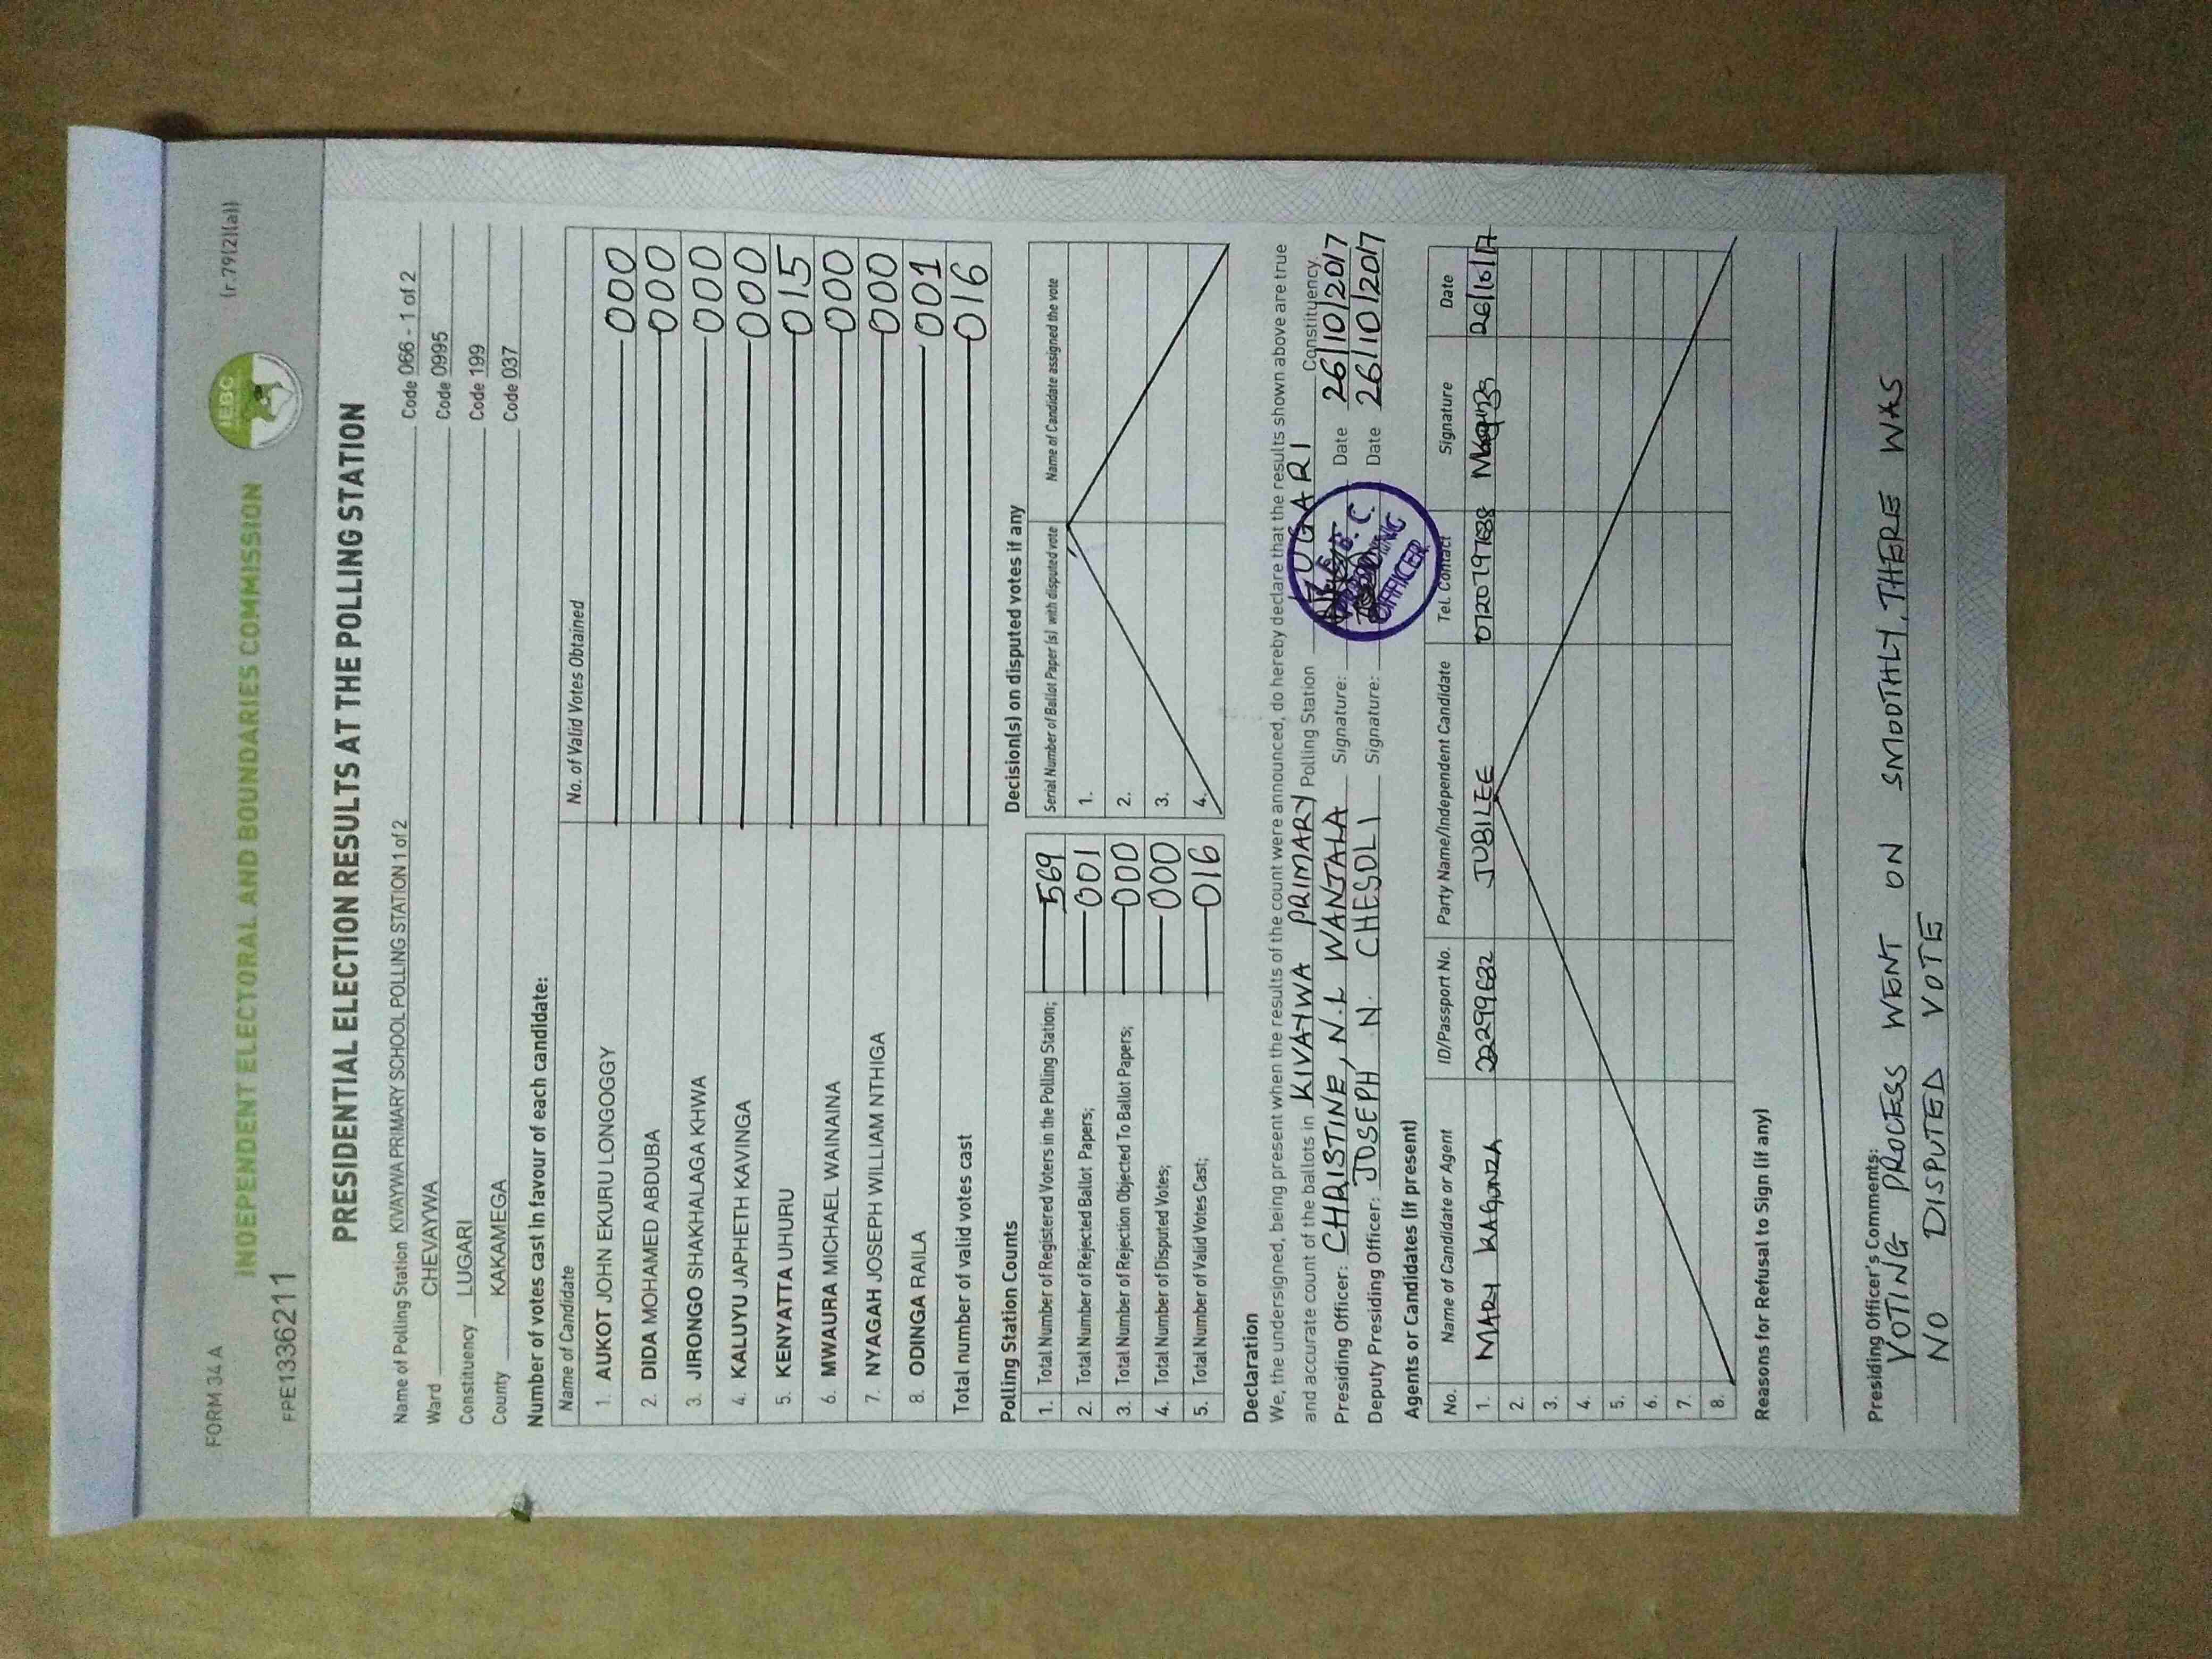 FORM 34 A
(r.79(2)(a))
IEBC
INDEPENDENT ELECTORAL AND BOUNDARIES COMMISSION
FPE1336211
PRESIDENTIAL ELECTION RESULTS AT THE POLLING STATION
Name of Polling Station KIVAYWA PRIMARY SCHOOL POLLING STATION 1 of 2 Code 066 - 1 of 2
Ward CHEVAYWA Code 0995
Constituency LUGARI Code 199
County KAKAMEGA Code 037
Number of votes cast in favour of each candidate:
Name of Candidate No. of Valid Votes Obtained
1. AUKOT JOHN EKURU LONGOGGY 000
2. DIDA MOHAMED ABDUBA 000
3. JIRONGO SHAKHALAGA KHWA 000
4. KALUYU JAPHETH KAVINGA 000
5. KENYATTA UHURU 015
6. MWAURA MICHAEL WAINAINA 000
7. NYAGAH JOSEPH WILLIAM NTHIGA 000
8. ODINGA RAILA 001
Total number of valid votes cast 016
Polling Station Counts
1. Total Number of Registered Voters in the Polling Station; 569
2. Total Number of Rejected Ballot Papers; 001
3. Total Number of Rejection Objected To Ballot Papers; 000
4. Total Number of Disputed Votes; 000
5. Total Number of Valid Votes Cast; 016
Decision(s) on disputed votes if any
Serial Number of Ballot Paper (s) with disputed vote Name of Candidate assigned the vote
1.
2.
3.
4.
Declaration
We, the undersigned, being present when the results of the count were announced, do hereby declare that the results shown above are true
and accurate count of the ballots in KIVAYWA PRIMARY Polling Station LUGARI Constituency.
Presiding Officer: CHRISTINE, N.L WANJALA Signature: Date 26/10/2017
Deputy Presiding Officer: JOSEPH N. CHESOLI Signature: Date 26/10/2017
OFFICER
Agents or Candidates (if present)
No. Name of Candidate or Agent ID/Passport No. Party Name/Independent Candidate Tel. Contact Signature Date
1. MARY KAGONZA 22299682 JUBILEE 26/10/17
2.
3.
4.
5.
6.
7.
8.
Reasons for Refusal to Sign (if any)
Presiding Officer's Comments:
VOTING PROCESS WENT ON SMOOTHLY, THERE WAS
NO DISPUTED VOTE